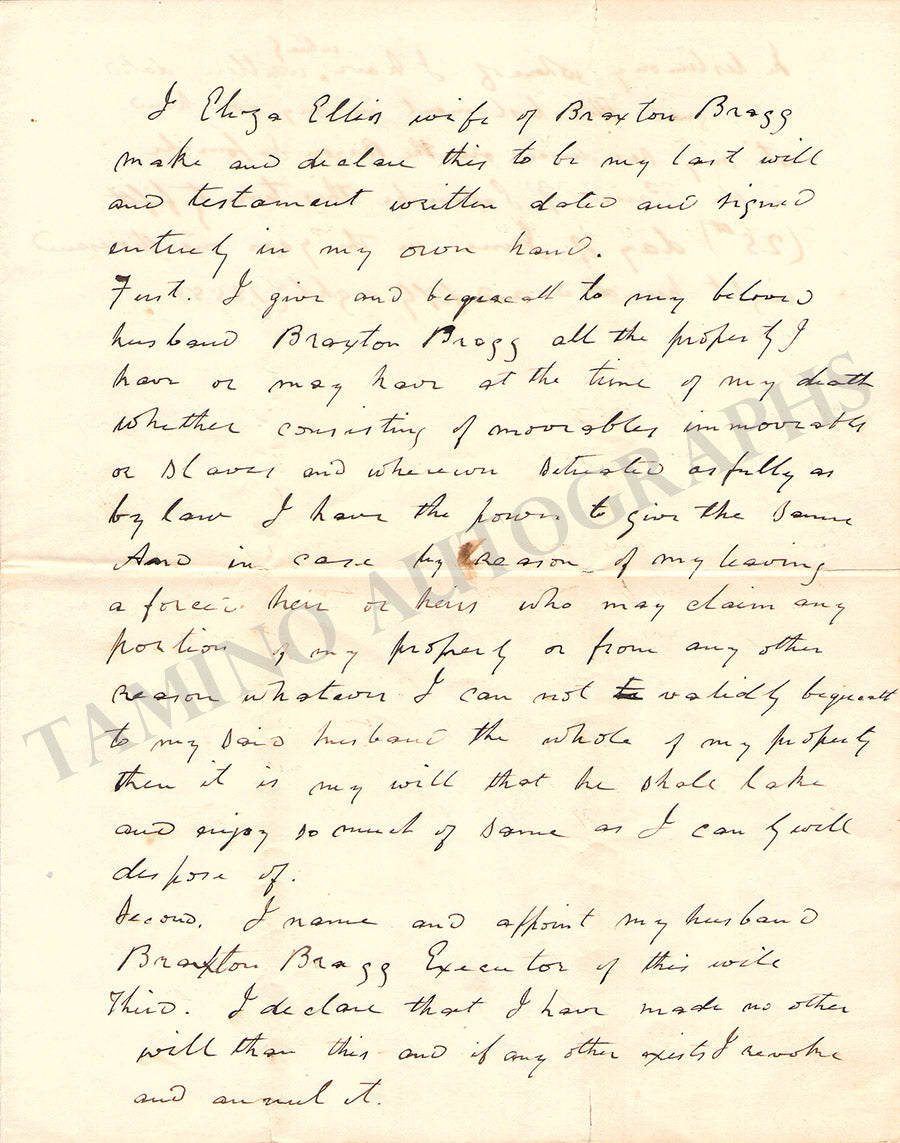 I Eliza Ellis wife of Braxton Bragg
make and declare this to be my last will
and testament written dated and signed
entirely in my own hand.
First. I give and bequeath to my beloved
husband Braxton Bragg all the property I
have or may have at the time of my death
whether consisting of movables immovables
or slaves and wherever situated as fully as
by law I have the power to give the same
And in case by reason of my leaving
a forced heir or heirs who may claim any
portion of my property or from any other
reason whatever I can not to validly bequeath
to my said husband the whole of my property
then it is my will that he shall take
and enjoy so much of same as I can by will
dispose of.
Second. I name and appoint my husband
Braxton Bragg Executor of this will
Third. I declare that I have made no other
will than this and if any other exists I revoke
and annul it.
TAMINO AUTOGRAPHS